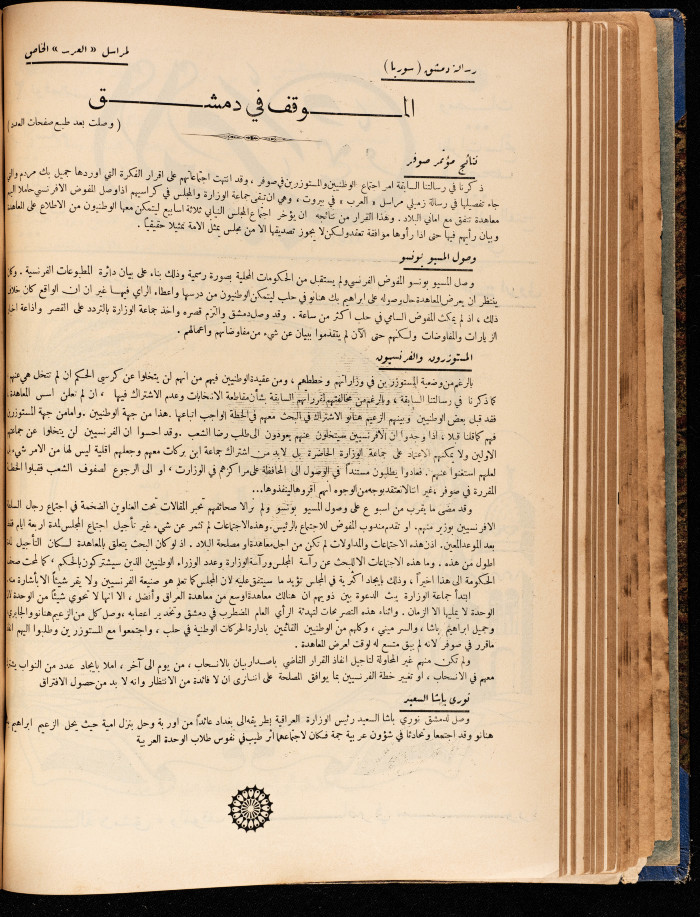 رسالة دمشق ( سوريا )
لمراسل « العرب » الخاص
الموقف في دمشق
( وصلت بعد طبع صفحات العدد )
نتائج مؤتمر صوفر
ذكرنا في رسالتنا السابقة امر اجتماع الوطنيين والمستوزرين في صوفر ، وقد انتهت اجتماعاتهم على اقرار الفكرة التي اوردها جميل بك مردم والتي
جاء تفصيلها في رسالة زميلي مراسل « العرب » في بيروت ، وهي ان تبقى جماعة الوزارة والمجلس في كراسيهم اذا وصل المفوض الافرنسي حاملا اليهم
معاهدة تتفق مع اماني البلاد . وهذا القرار من نتائجه ان يؤخر اجتماع المجلس النيابي ثلاثة اسابيع ليتمكن معها الوطنيون من الاطلاع على المعاهدة
وبيان رأيهم فيها حتى اذا رأوها موافقة تعقد ولكن لا يجوز تصديقها الا من مجلس يمثل الامة تمثيلا حقيقياً .
وصول المسيو بونسو
وصل المسيو بونسو المفوض الفرنسي ولم يستقبل من الحكومات المحلية بصورة رسمية وذلك بناء على بيان دائرة المطبوعات الفرنسية . وكان
ينتظر ان يعرض المعاهدة حال وصوله على ابراهيم بك هنانو في حلب ليتمكن الوطنيون من درسها واعطاء الراي فيها غير ان ان الواقع كان خلاف
ذلك ، اذ لم يمكث المفوض السامي في حلب اكثر من ساعة . وقد وصل دمشق والتزم قصره واخذ جماعة الوزارة بالتردد على القصر واذاعة اخبار
الزيارات والمفاوضات ولكنهم حتى الآن لم يتقدموا ببيان عن شيء من مفاوضاتهم واعمالهم .
المستوزرون والفرنسيون
بالرغم من وضعية المستوزرين في وزاراتهم وخططهم ، ومن عقيدة الوطنيين فيهم من انهم لن يتخلوا عن كرسي الحكم ان لم تتخل هي عنهم
كما ذكرنا في رسالتنا السابقة ، وبالرغم من مخالفتهم لقرراتهم السابقة بشأن مقاطعة الانتخابات وعدم الاشتراك فيها ، ان لم تعلن اسس المعاهدة
فقد قبل بعض الوطنيين وبينهم الزعيم هنانو الاشتراك في البحث معهم في الخطة الواجب اتباعها . هذا من جهة الوطنيين . واما من جهة المستوزرين
فهم كما قلنا قبلا ، اذا وجدوا ان الافرنسيين سيتخلون عنهم يعودون الى طلب رضا الشعب . وقد احسوا ان الفرنسيين لن يتخلوا عن جماعتهم
الاولين ولا يمكنهم الاعتماد على جماعة الوزارة الحاضرة بل لابد من اشتراك جماعة ابن بركات معهم وجعلهم اقلية ليس لها من الامر شيء
لعلهم استغنوا عنهم . فعادوا يطلبون مستنداً في الوصول الى المحافظة على مراكزهم في الوزارت ، او الى الرجوع لصفوف الشعب فقبلوا الخطة
المقررة في صوفر ، غير اننا لا نعتقد بوجه من الوجوه انهم اقروها لينفذوها ...
وقد مضى ما يقرب من اسبوع على وصول المسيو بونسو ولم تزالا صحائفهم تحبر المقالات تحت العناوين الضخمة في اجتماع رجال السلطة
الافرنسيين بوزير منهم . او تقدم مندوب المفوض للاجتماع بالرئيس . وهذه الاجتماعات لم تثمر عن شيء غير تأجيل اجتماع المجلس لمدة اربعة ايام فقط
بعد الموعد المعين . اذن هذه الاجتماعات والمداولات لم تكن من اجل معاهدة او مصلحة البلاد . اذ لو كان البحث يتعلق بالمعاهدة لكان التأجيل لمدة
اطول من هذه . وما هذه الاجتماعات الا للبحث عن رآسة المجلس ورآسة الوزارة وعدد الوزراء الوطنيين الذين سيشتركون بالحكم ، كما لمحت صحف
الحكومة الى هذا اخيراً ، وذلك بايجاد اكثرية في المجلس تؤيد ما سيتفق عليه لان المجلس كما تعلم هو صنيعة الفرنسيين ولا يقر شيئاً الا باشارة منهم
ابتدأ جماعة الوزارة يبث الدعوة بين ذويهم ان هنالك معاهدة اوسع من معاهدة العراق وأفضل ، الا انها لا تحوي شيئاً من الوحدة لان
الوحدة لا يمليها الا الزمان . واثناء هذه التصريحات لتهدئة الرأي العام المضطرب في دمشق وتخدير اعصابه ، وصل كل من الزعيم هنانو والجابري
وجميل ابراهيم باشا ، والسرميني ، وكلهم من الوطنيين القائمين بادارة الحركات الوطنية في حلب ، واجتمعوا مع المستوزرين وطلبوا اليهم انفاذ
ماقرر في صوفر لانه لم يبق متسع له لوقت لعرض المعاهدة .
ولم تكن منهم غير المحاولة لتاجيل انفاذ القرار القاضي باصدار بيان بالانسحاب ، من يوم الى آخر ، املا بايجاد عدد من النواب
معهم في الانسحاب ، او تغيير خطة الفرنسيين بما يوافق المصلحة على اننا نرى ان لا فائدة من الانتظار وانه لا بد من حصول الافتراق
نوري باشا السعيد
وصل لدمشق نوري باشا السعيد رئيس الوزارة العراقية بطريقه الى بغداد عائداً من اوربة وحل بنزل امية حيث يحل الزعيم ابراهيم
هنانو وقد اجتمعا وتحادثا في شؤون عربية جمة فكان لاجتماعهما اثر طيب في نفوس طلاب الوحدة العربية